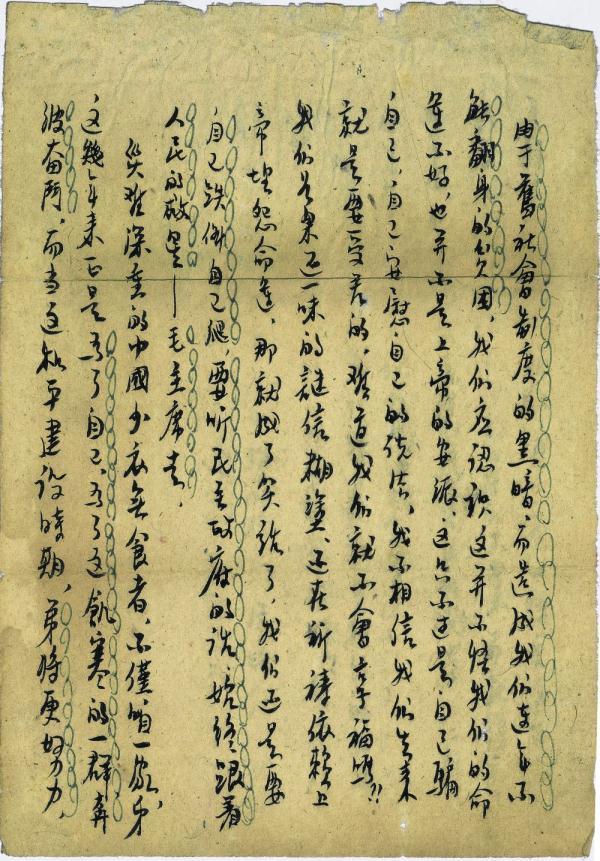 由于舊社會制度的黑暗，而造成我们連年不
能翻身的貧困，我们应認識这并不怪我们的命
運不好，也并不是上帝的安派，这只不过是自己騙
自己，自己安慰自己的说法，我不相信我们生来
就是要受苦的，难道我们就不會享福嗎!!
我们若果还一味的謎信糊塗，还在祈祷依賴上
帝埋怨命運，那就成了笑話了，我们还是要
自己跌倒自己爬，要听民主政府的话，始终跟着
人民的救星—毛主席走，
災难深重的中國少衣無食者，不僅咱一家，
这幾年来正是為了自己，為了这飢寒的一群，奔
波奋鬥，而当这和平建设時期，弟将更努力，